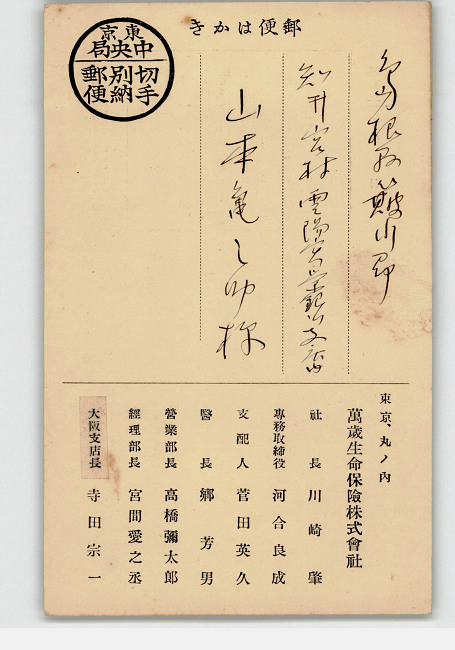 郵便はかき
東京
中央局
切手
別納
郵便
島根縣簸川郡
知井宮村雲陽実業銀行支店
山本亀之助様
東京、丸ノ內
萬歲生命保險株式會社
社長 川崎肇
專務取締役 河合良成
支配人 菅田英久
醫長 鄉芳男
營業部長 高橋彌太郎
經理部長 宮間愛之丞
大阪支店長 寺田宗一